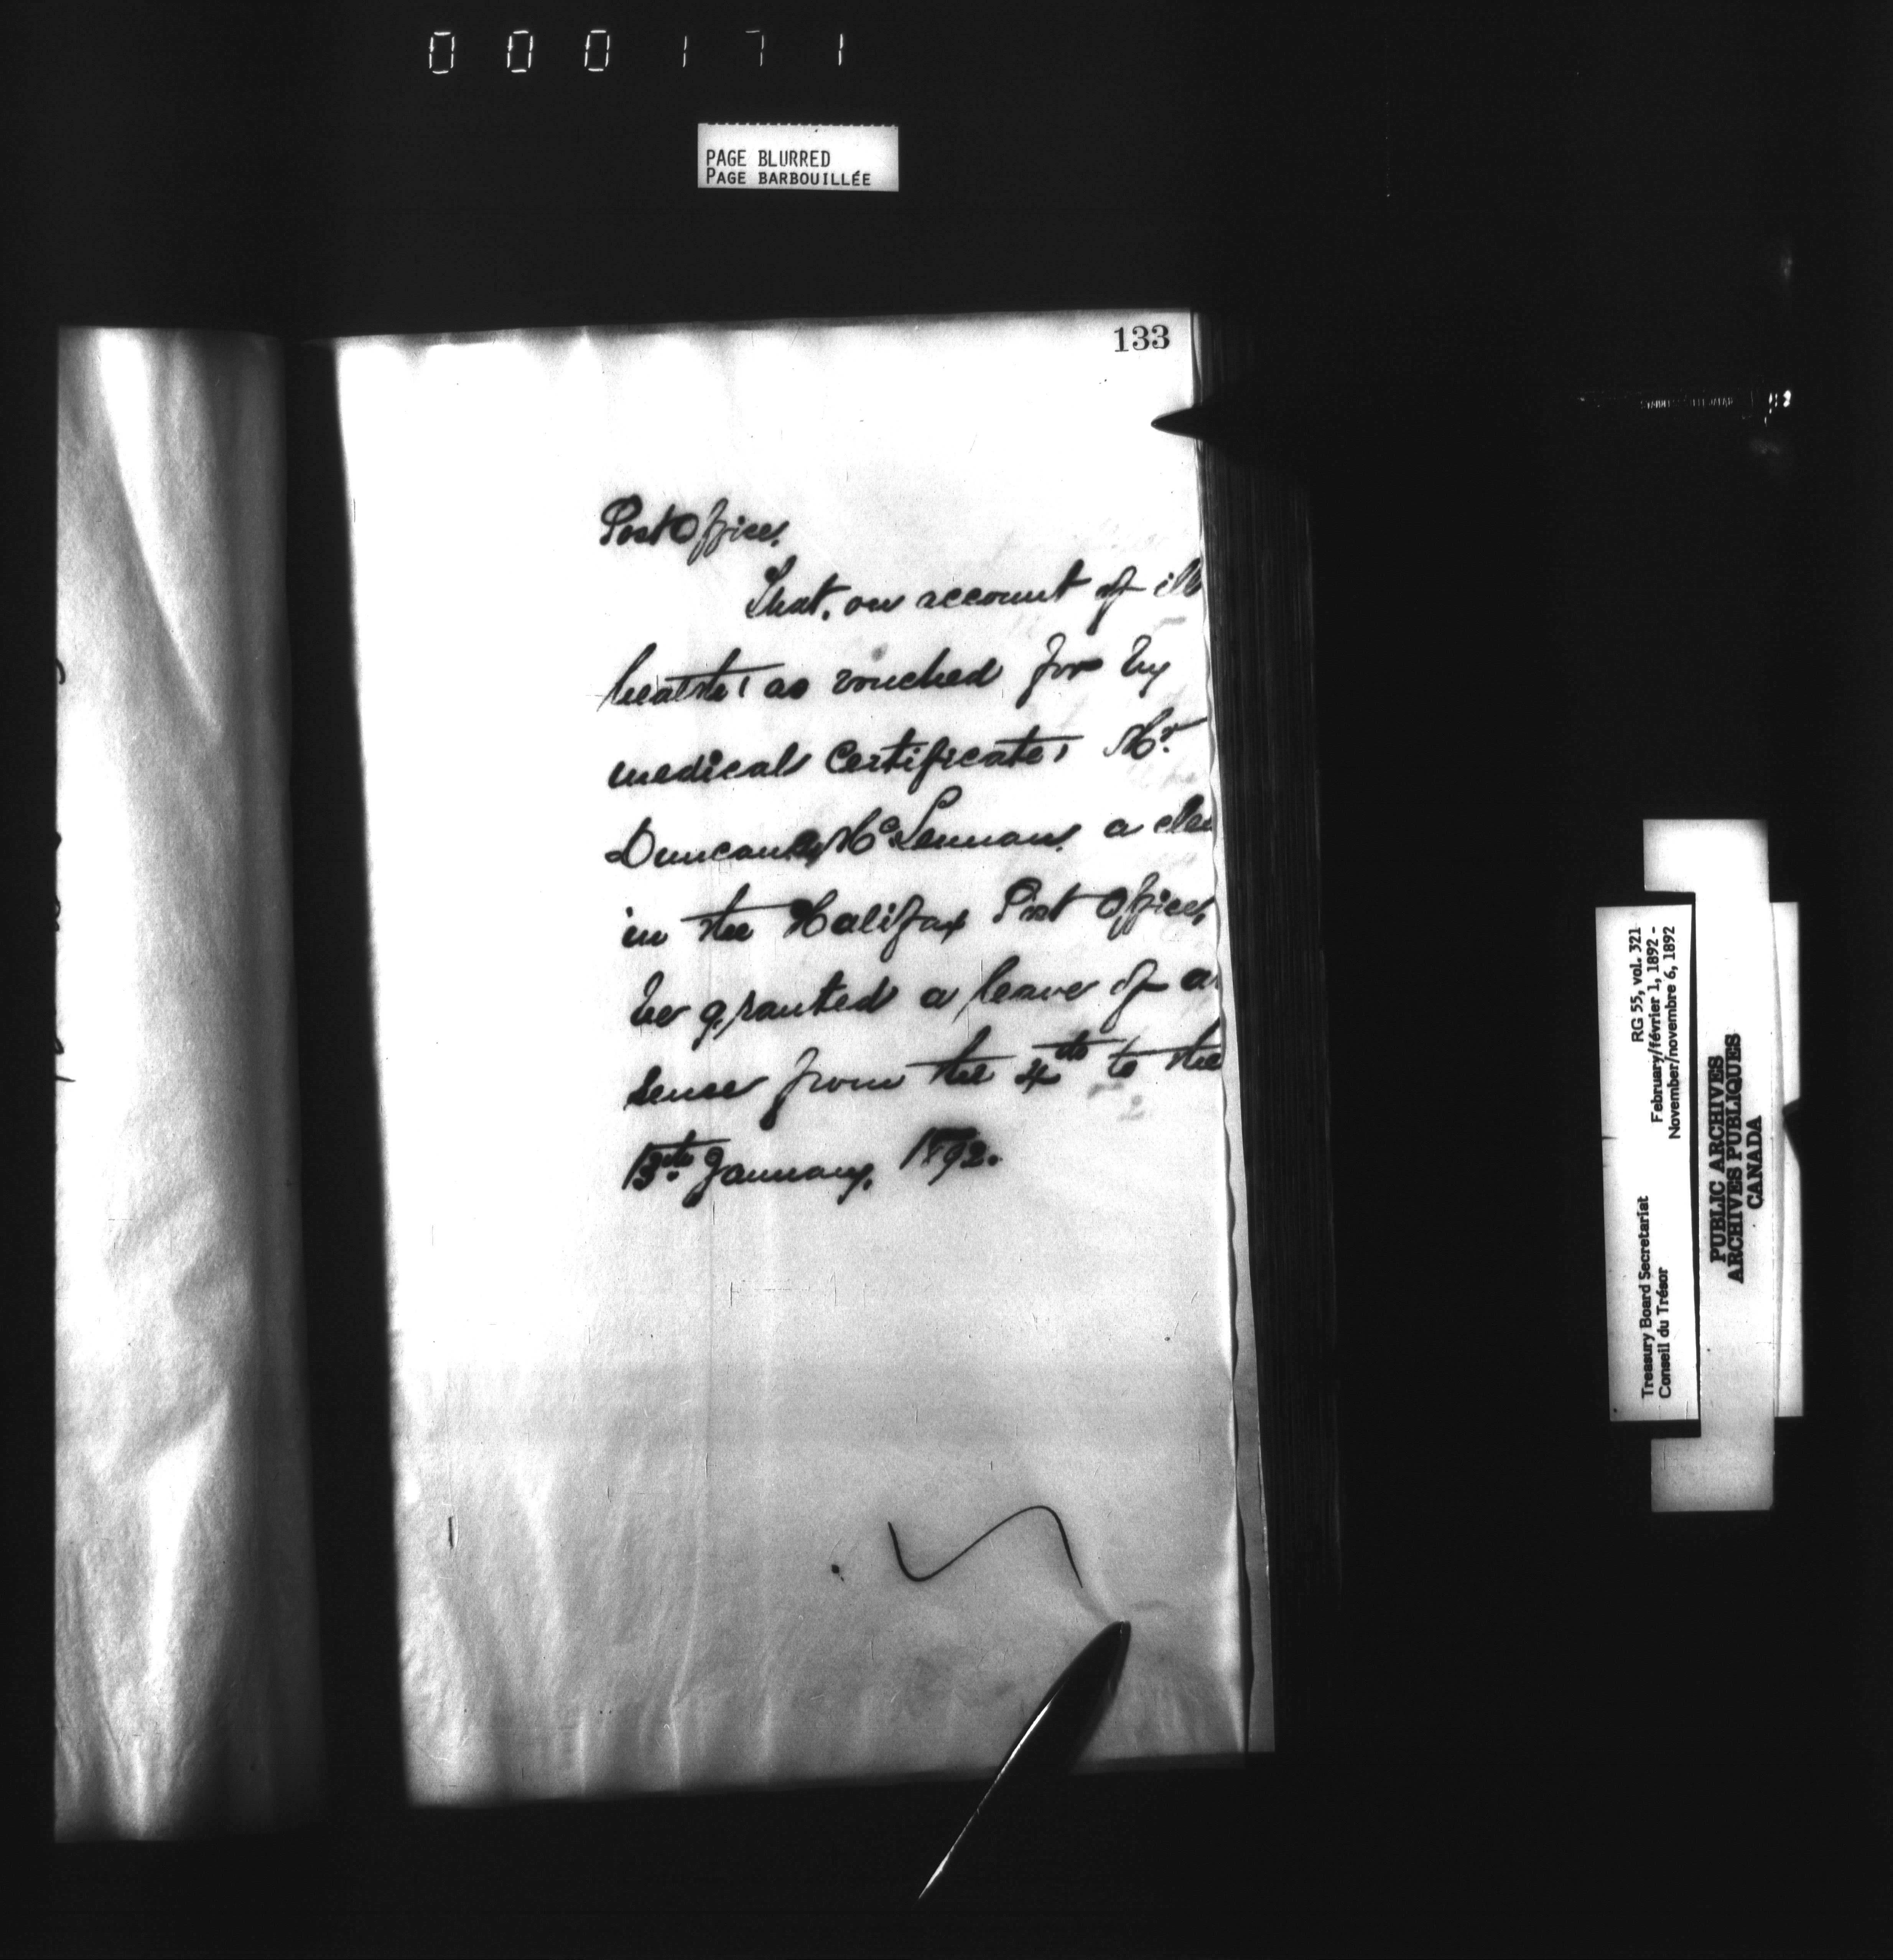 000171
PAGE BLURRED
PAGE BARBOUILLÉE
133
Post Office.
That, on account of ill
health, as vouched for by
medical Certificate, Mr.
Duncan McLennan, a cler
in the Halifax Post Office,
be granted a leave of a
sence from the 4th to the
13th January, 1892.
Treasury Board Secretariat RG 55, vol. 321
Conseil du Trésor February/février 1, 1892 -
November/novembre 6, 1892
PUBLIC ARCHIVES
ARCHIVES PUBLIQUES
CANADA